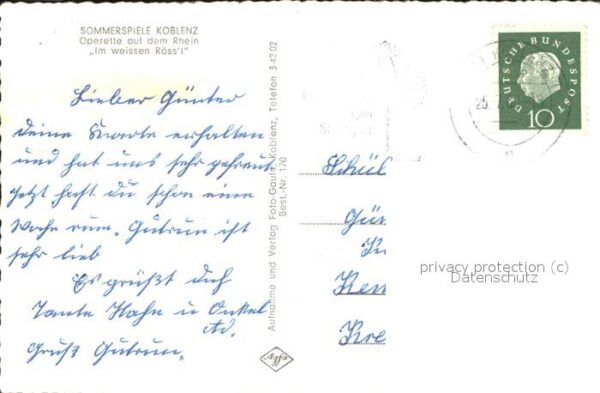 SOMMERSPIELE KOBLENZ
Operette auf dem Rhein
„Im weissen Röss'l"
Lieber Günter
deine Karte erhalten
und hat uns sehr gefreut
jetzt hast du schon eine
Woche rum. Gutrun ist
sehr lieb
Es grüßt dich
Tante Hahn u Onkel
Ad.
Gruß Gutrun.
Aufnahme und Verlag Foto-Gauls, Koblenz, Telefon 3 42 02
Best.-Nr. 170
effka
DEUTSCHE BUNDESPOST
10
25.
Schül
Gün
Kr
Ken
Kre
privacy protection (c)
Datenschutz